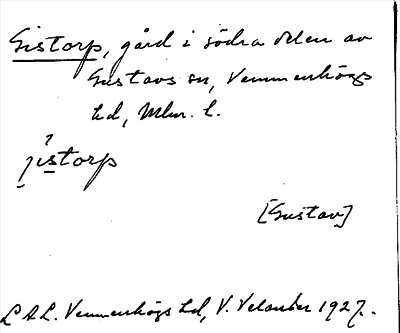 Gistorp, gård i södra delen av
Gustavs sn, Vemmenhögs
hd, Mhm. l.
jistorp
[Gustav]
L A L. Vemmenhögs hd, V. Velander 1927.